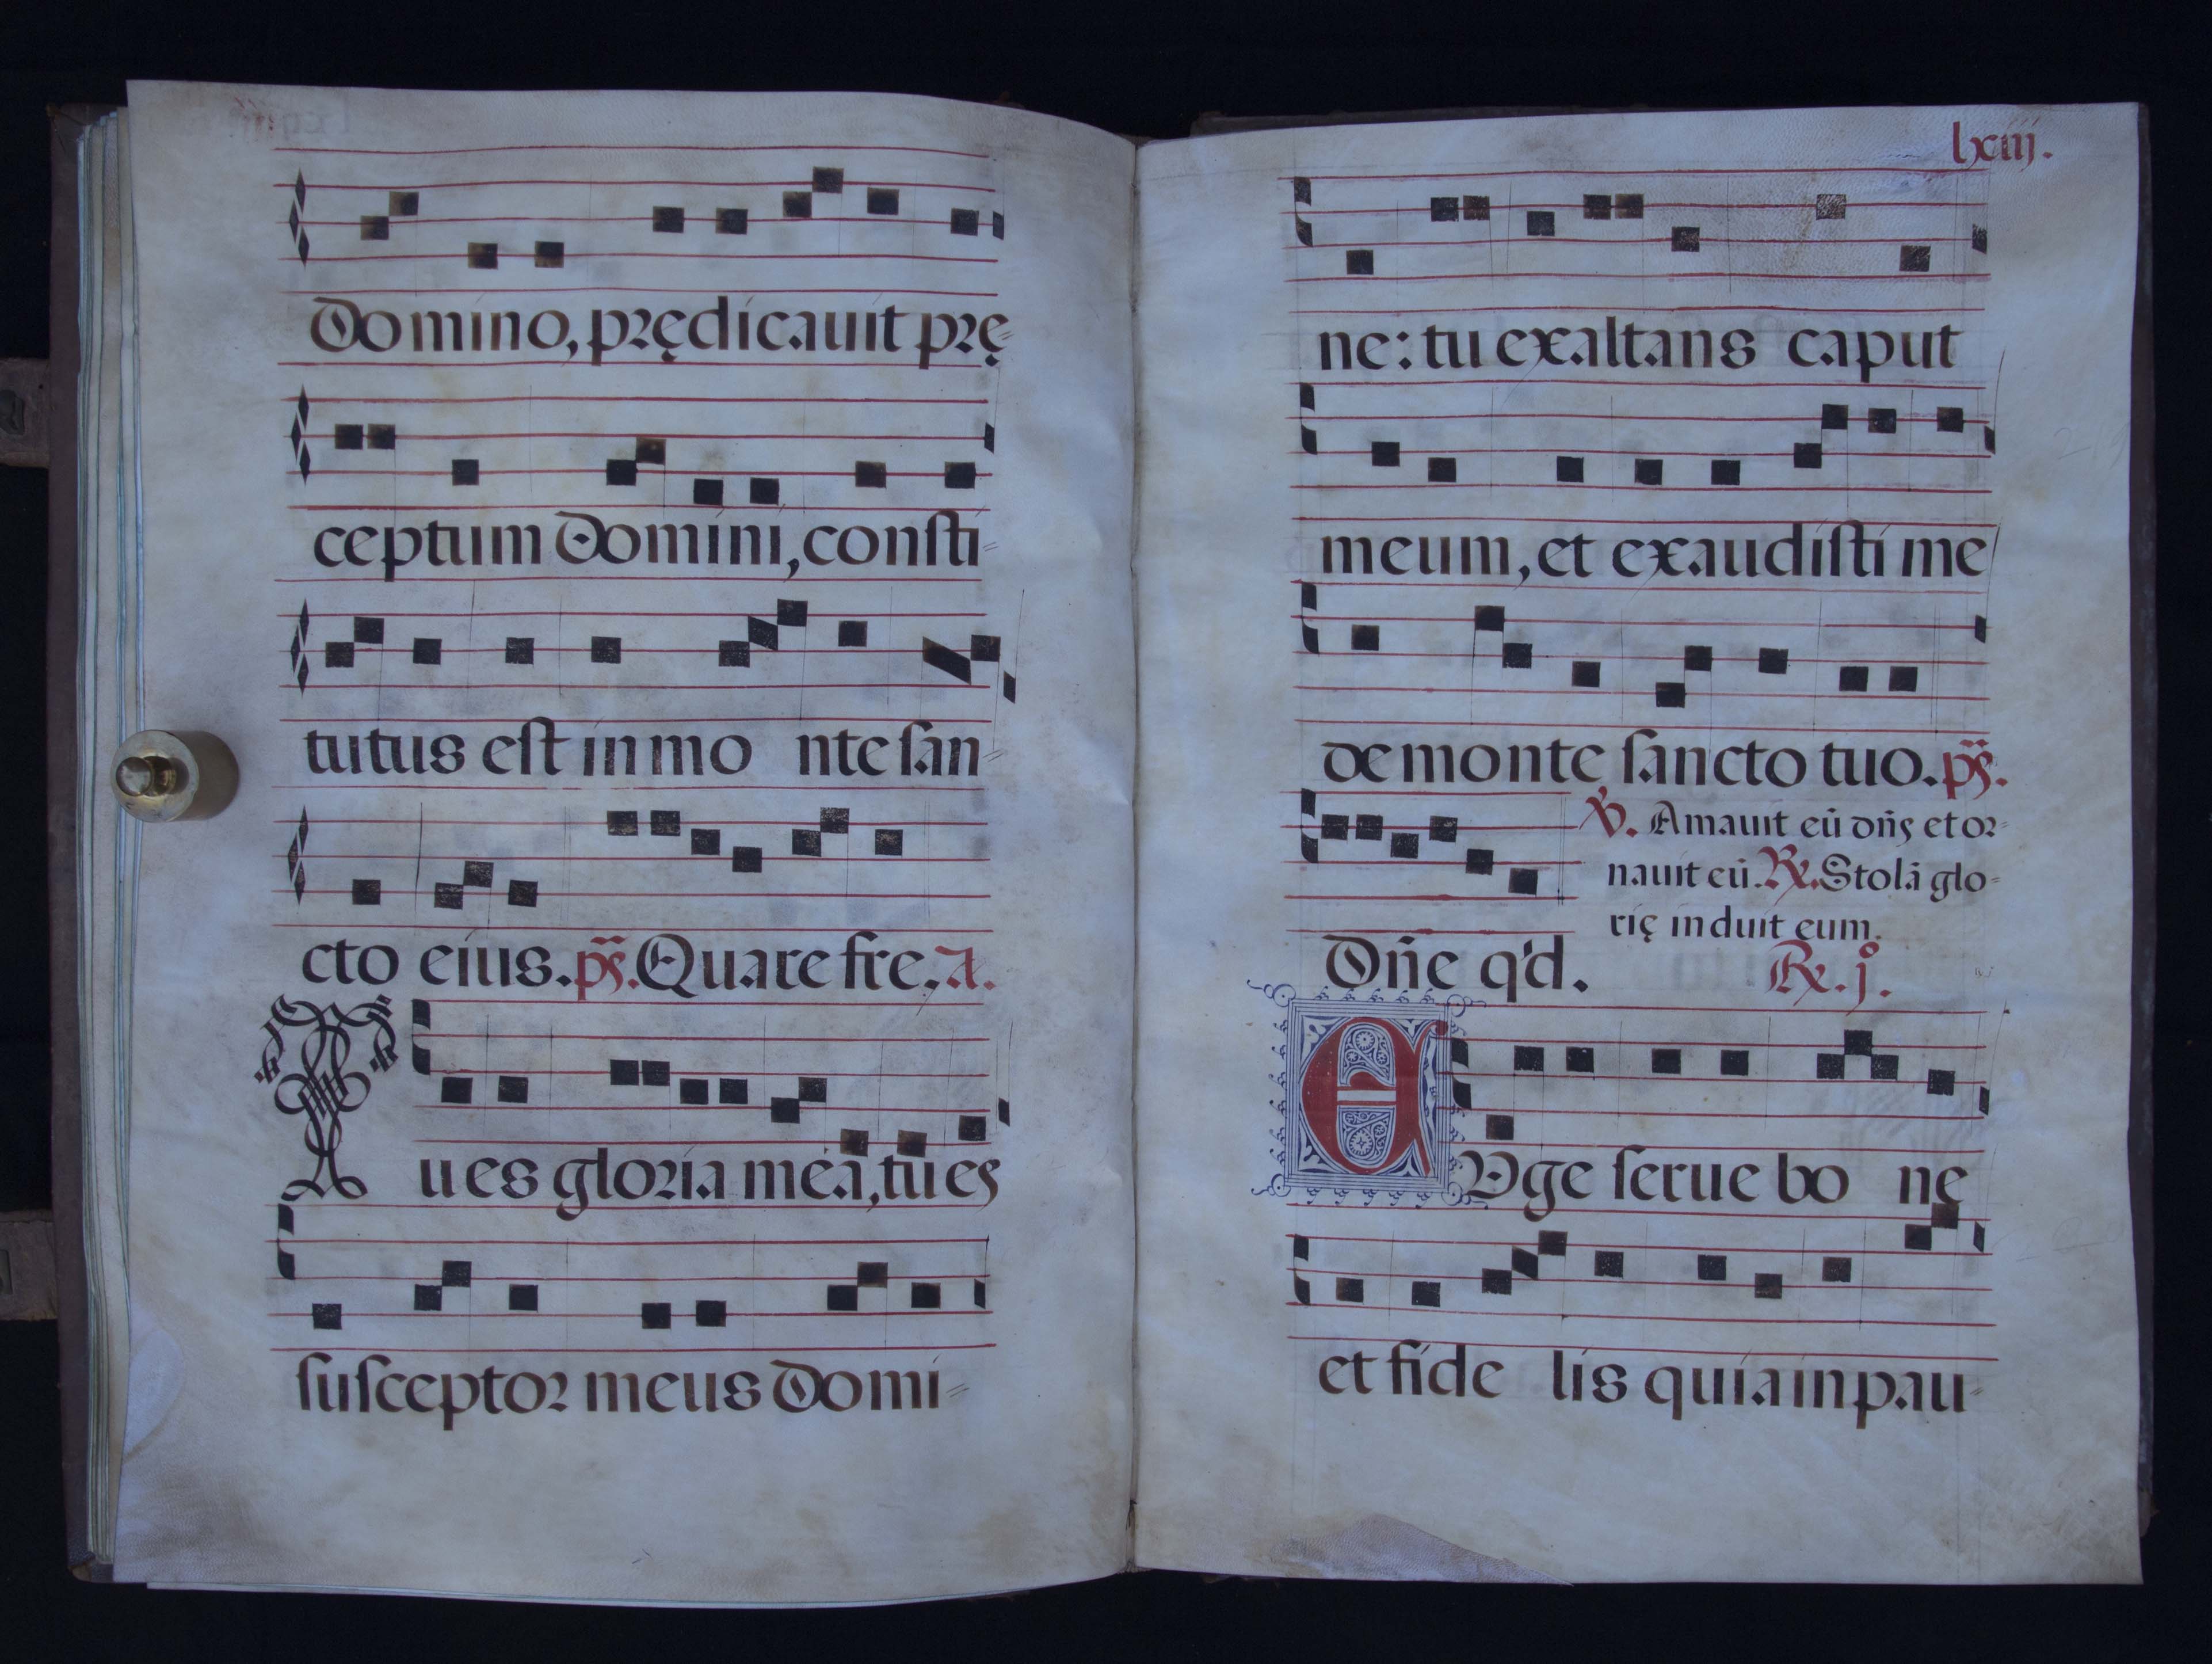 Domino, prędicauit prę=
ceptum Domini, consti=
tutus est in mo nte san=
cto eius. ps. Quare fre. A.
Tu es gloria mea, tu es
susceptor meus Domi=
lxiij.
ne: tu exaltans caput
meum, et exaudisti me
de monte sancto tuo. ps.
Dñe q'd.
V. Amauit eū dñs et or=
nauit eū. R. Stolā glo=
rię induit eum.
R. j.
EVge serue bo ne
et fide lis quia in pau=